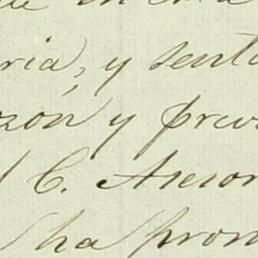 ria, y sent
zón y prev
C. Asesor
ha pron